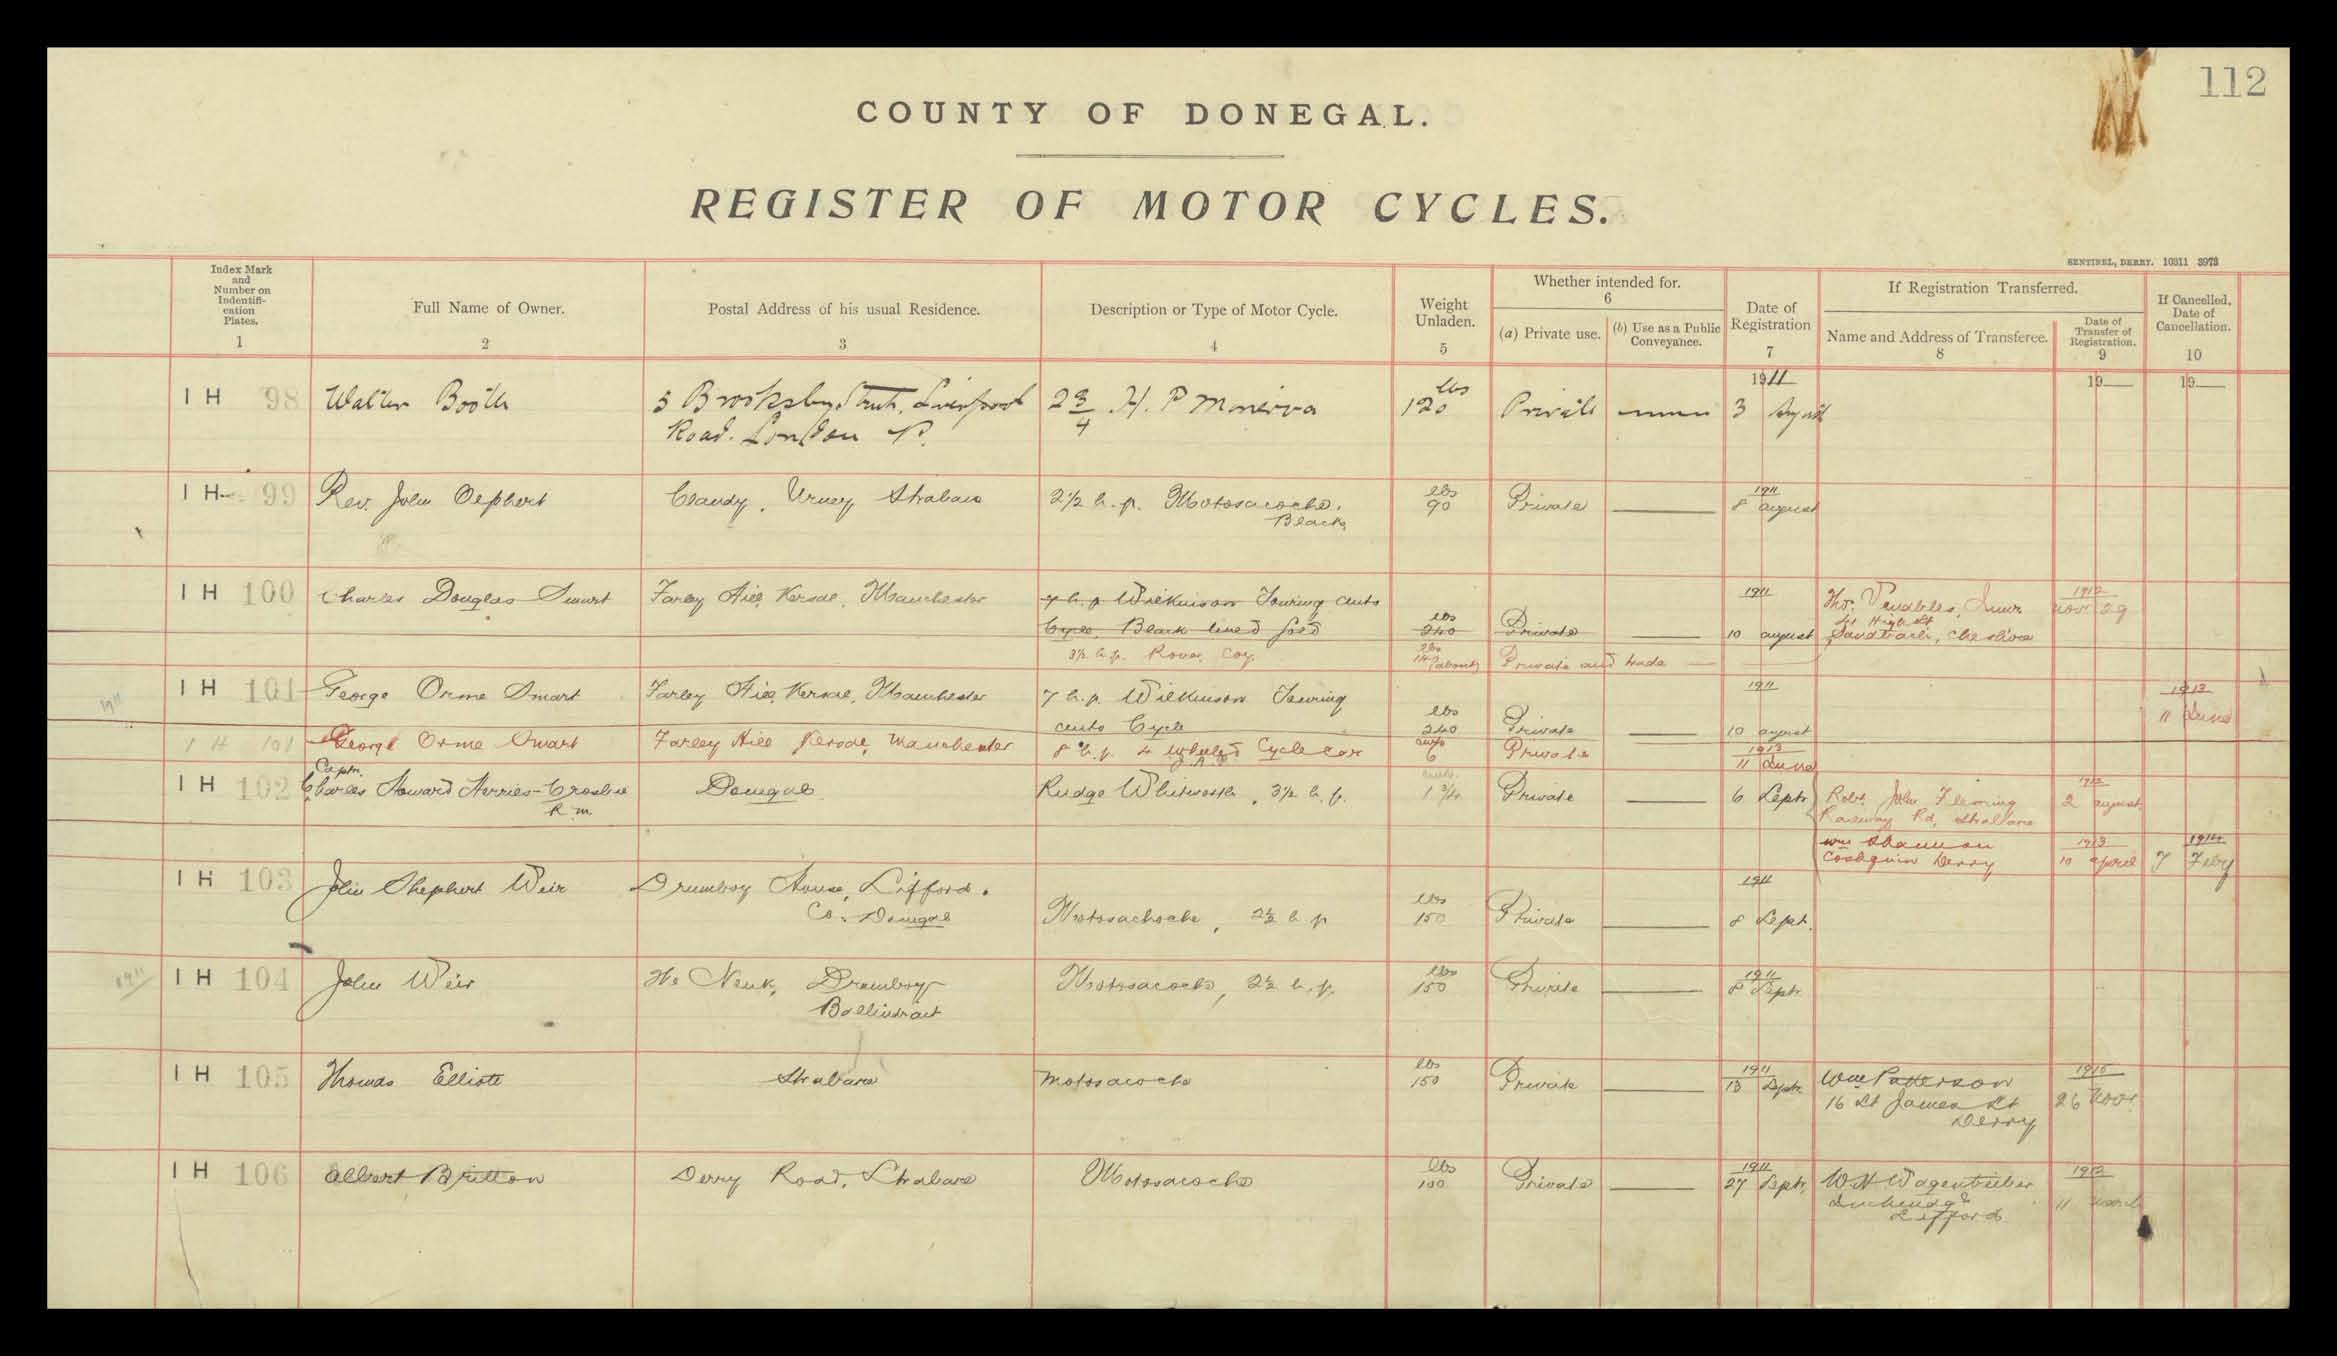 112
COUNTY OF DONEGAL.
REGISTER OF MOTOR CYCLES.
SENTINEL, DERRY. 10311 3973
Index Mark and Number on Indentifi- cation Plates. 1
Full Name of Owner. 2
Postal Address of his usual Residence. 3
Description or Type of Motor Cycle. 4
Weight Unladen. 5
Whether intended for. 6
(a) Private use.
(b) Use as a Public Conveyance.
Date of Registration 7
If Registration Transferred.
Name and Address of Transferee. 8
Date of Transfer of Registration. 9
If Cancelled, Date of Cancellation. 10
1911 19 19
IH 98 Walter Booth 5 Brooksby Street, Liverpool 2 3/4 H.P Minerva lbs 120 Private 3 August
Road. London N.
IH 99 Rev. John Olphert Clandy, Urney Strabane 2½ h.p. Motosacoche. lbs 90 Private 1911 8 august
Black
IH 100 Charles Douglas Smart Farley Hill, Kersal, Manchester 7 h.p Wilkinson Touring Auto 1911 Thos. Venables, Junr 1912 Nov 29
41 High St
Cycle, Black lined red lbs 240 Private 10 august Sandbach, Cheshire
3½ h.p. Rover Coy lbs (about) Private and trade
1911 IH 101 George Orme Smart Farley Hill, Kersal, Manchester 7 h.p. Wilkinson Touring 1911 1913
11 June
auto Cycle lbs 240 Private 10 august
IH 101 George Orme Smart Farley Hill Kersal, Manchester 8 h.p. 4 wheeled Cycle car cwts 6 Private 1913
11 June
Captn.
IH 102 Charles Howard Herries-Crosbie Donegal Rudge Whitworth, 3½ h.p. cwts. 1 3/4 Private 6 Septr Robt. John Fleming 1912 2 august
R.M. Railway Rd, Strabane
Wm Shannon 1913 1914
Coshquin Derry 10 april 7 Feby
IH 103 John Shephert Weir Drumboy House, Lifford. 1911
Co. Donegal Motosachoche, 2½ h.p lbs 150 Private 8 Sept.
1911 IH 104 John Weir The Neuk, Drumboy Motosacoche, 2½ h.p. lbs 150 Private 1911 8 Septr
Ballindrait
IH 105 Thomas Elliott Strabane Motosacoche lbs 150 Private 1911 13 Septr Wm Patterson 1915
16 St James St 26 Novr
Derry
IH 106 Albert Britton Derry Road, Strabane Motosacoche lbs 100 Private 1911 27 Septr. W.H Wagentreiber 1912
11 March
Lifford